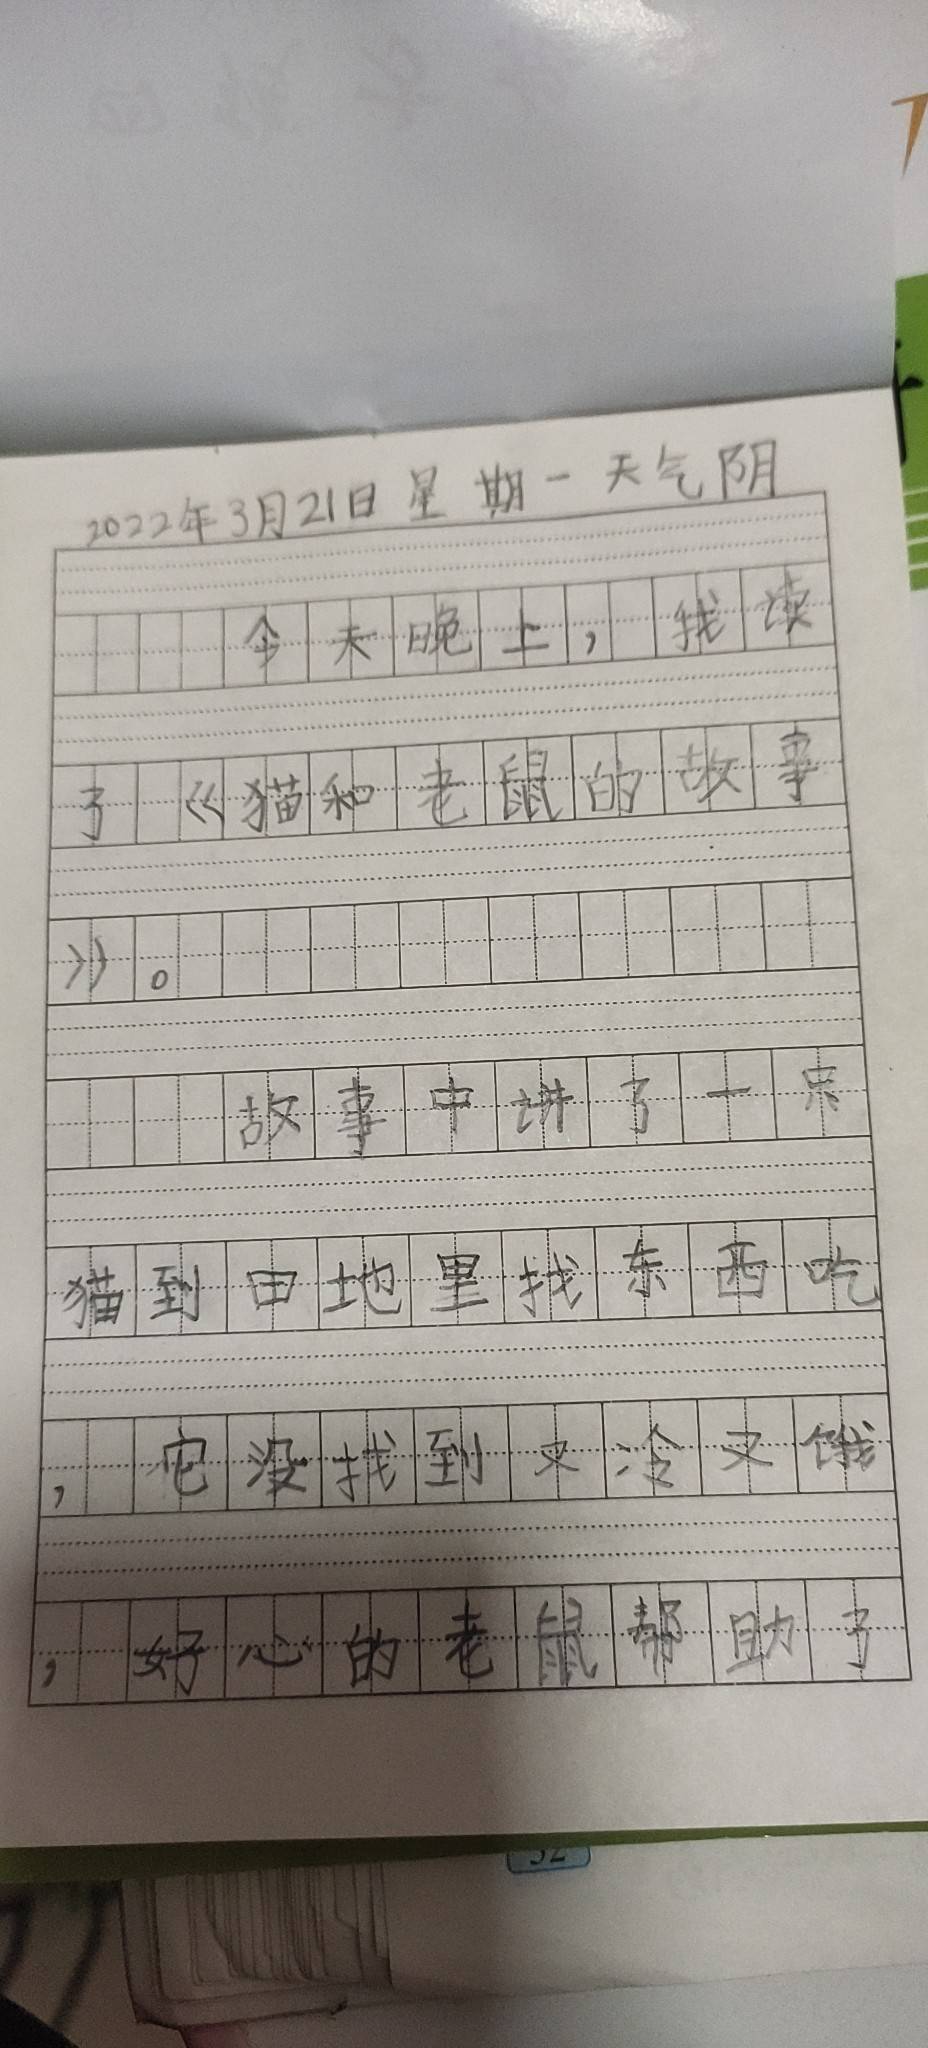 2022年3月21日星期一天气阴
今天晚上，我读
了《猫和老鼠的故事
》。
故事中讲了一只
猫到田地里找东西吃
，它没找到又冷又饿
，好心的老鼠帮助了